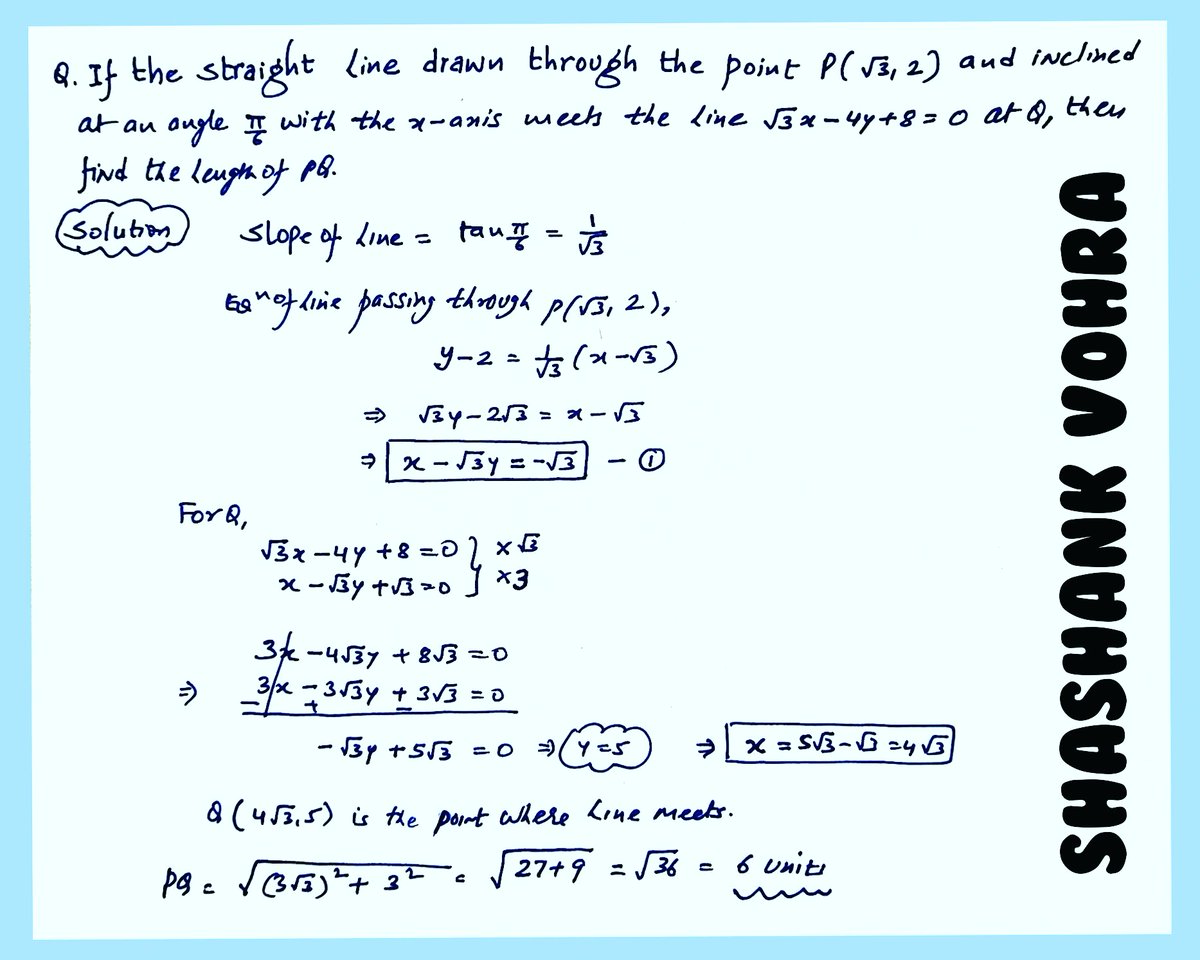 Q. If the straight line drawn through the point P(√3, 2) and inclined
at an angle π/6 with the x-axis meets the line √3x - 4y + 8 = 0 at Q, then
find the length of PQ.
Solution
Slope of line = tan π/6 = 1/√3
Eqⁿ of line passing through P(√3, 2),
y - 2 = 1/√3 (x - √3)
⇒ √3y - 2√3 = x - √3
⇒ x - √3y = -√3 - ①
For Q,
√3x - 4y + 8 = 0 } × √3
x - √3y + √3 = 0 } × 3
3x - 4√3y + 8√3 = 0
⇒ 3x - 3√3y + 3√3 = 0
- + -
- √3y + 5√3 = 0 ⇒ y = 5 ⇒ x = 5√3 - √3 = 4√3
Q (4√3, 5) is the point where line meets.
PQ = √((3√3)² + 3²) = √(27 + 9) = √36 = 6 units
SHASHANK VOHRA